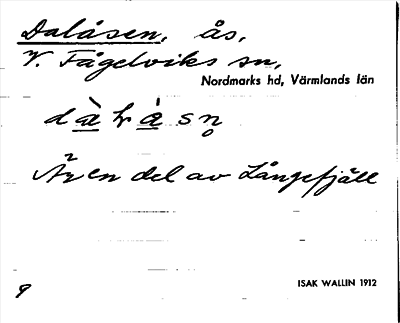 Dalåsen, ås,
V. Fågelviks sn,
Nordmarks hd, Värmlands län
Är en del av Långefjäll
9
ISAK WALLIN 1912